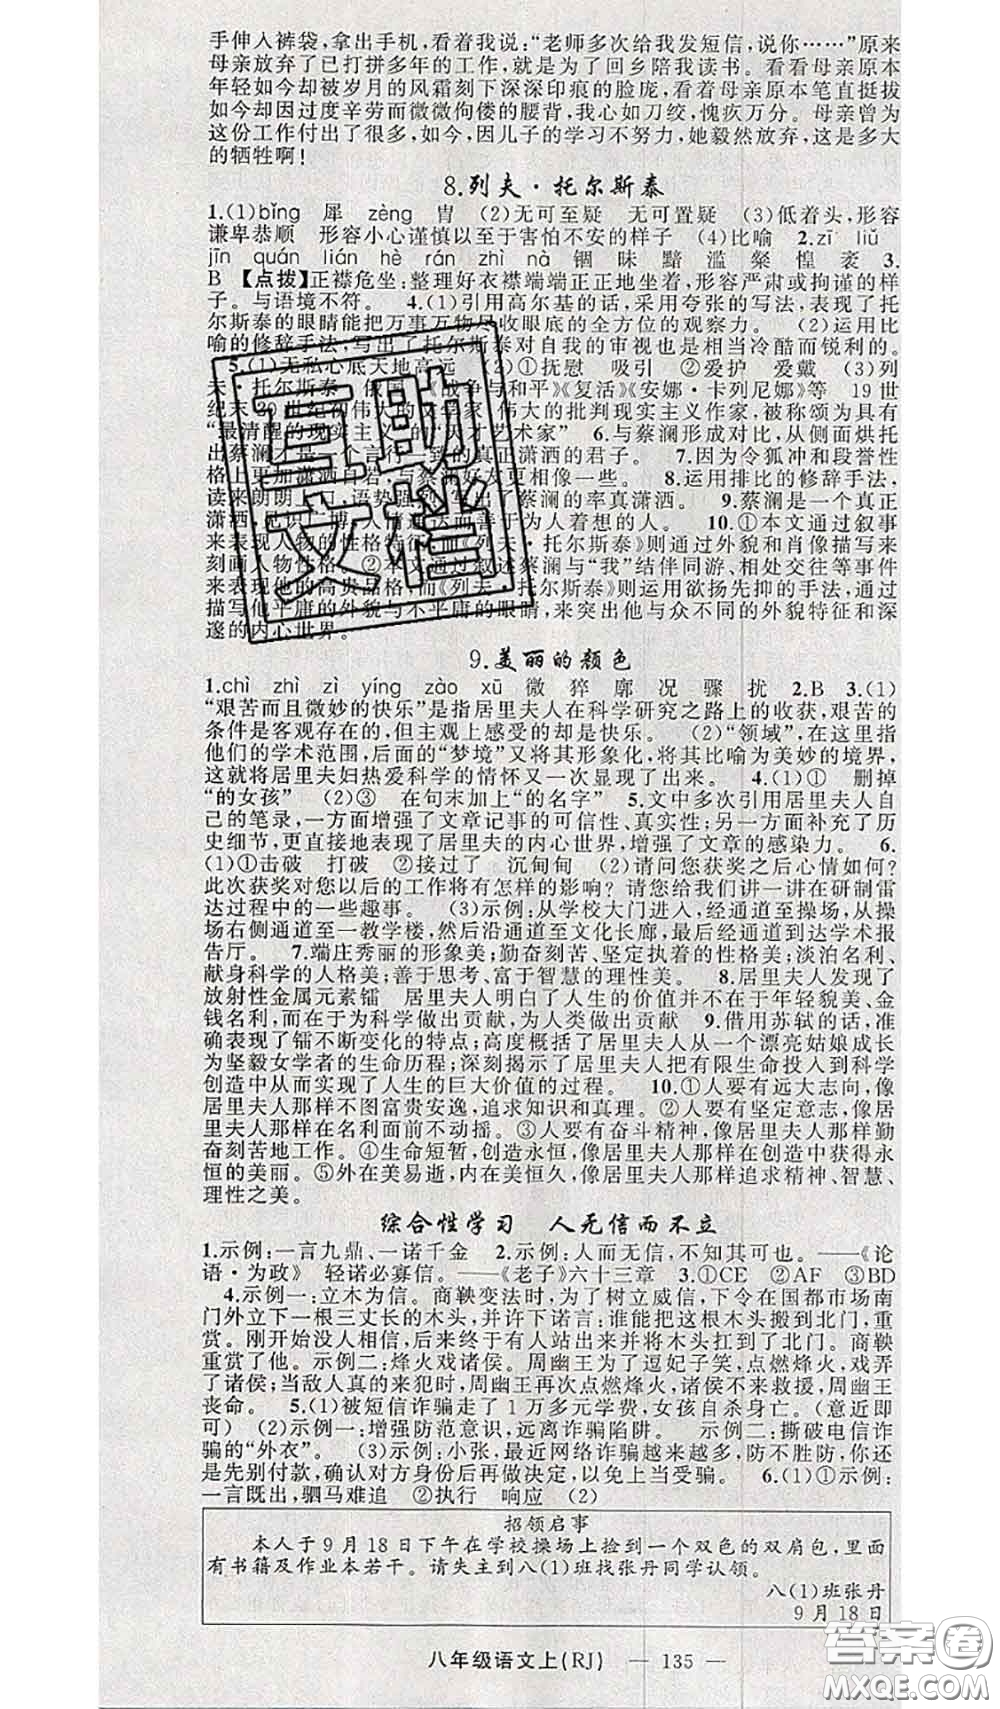 手伸入裤袋,拿出手机,看着我说:“老师多次给我发短信,说你……”原来
母亲放弃了已打拼多年的工作,就是为了回乡陪我读书。看看母亲原本
年轻如今却被岁月的风霜刻下深深印痕的脸庞,看着母亲原本笔直挺拔
如今却因过度辛劳而微微佝偻的腰背,我心如刀绞,愧疚万分。母亲曾为
这份工作付出了很多,如今,因儿子的学习不努力,她毅然放弃,这是多大
的牺牲啊!
8.列夫·托尔斯泰
1.(1)bǐng 犀 zèng 胄 (2)无可至疑 无可置疑 (3)低着头,形容
谦卑恭顺 形容小心谨慎以至于害怕不安的样子 (4)比喻 2.zī liǔ
jīn quán lián hè rán zhì nà 锢 昧 黯 滥 粲 惶 衮 3.
B 【点拨】正襟危坐:整理好衣襟端端正正地坐着,形容严肃或拘谨的样
子。与语境不符。 4.(1)引用高尔基的话,采用夸张的写法,表现了托
尔斯泰的眼睛能把万事万物尽收眼底的全方位的观察力。 (2)运用比
喻的修辞手法,写出了托尔斯泰对自我的审视也是相当冷酷而锐利的。
5.(1)无私心底天地高远 (2)①抚慰 吸引 ②爱护 爱戴 (3)列
夫·托尔斯泰 俄国 《战争与和平》《复活》《安娜·卡列尼娜》等 19世
纪末20世纪初伟大的文学家 伟大的批判现实主义作家,被称颂为具有
“最清醒的现实主义”的“天才艺术家” 6.与蔡澜形成对比,从侧面烘托
出蔡澜是一个言行一致的真正潇洒的君子。 7.因为令狐冲和段誉性
格上更加潇洒自若,与蔡澜好友更相像一些。 8.运用排比的修辞手法,
读来朗朗上口,语势强烈,写出了蔡澜的率真潇洒。 9.蔡澜是一个真正
潇洒,见识广博,人情通达而善于为人着想的人。 10.①本文通过叙事
来表现人物的性格特征,而《列夫·托尔斯泰》则通过外貌和肖像描写来
刻画人物性格。 ②本文通过叙述蔡澜与“我”结伴同游、相处交往等事件
来表现他的高贵品格,而《列夫·托尔斯泰》则运用欲扬先抑的手法,通过
描写他平庸的外貌与不平庸的眼睛,来突出他与众不同的外貌特征和深
邃的内心世界。
9.美丽的颜色
1.chì zhì zì yíng zào xū 微 猝 廓 况 骤 扰 2.B 3.(1)
“艰苦而且微妙的快乐”是指居里夫人在科学研究之路上的收获,艰苦的
条件是客观存在的,但主观上感受的却是快乐。 (2)“领域”,在这里指
他们的学术范围,后面的“梦境”又将其形象化,将其比喻为美妙的境界,
这就将居里夫妇热爱科学的情怀又一次显现了出来。 4.(1)① 删掉
“的女孩” (2)③ 在句末加上“的名字” 5.文中多次引用居里夫人自
己的笔录,一方面增强了文章记事的可信性、真实性;另一方面补充了历
史细节,更直接地表现了居里夫的内心世界,增强了文章的感染力。 6.
(1)①击破 打破 ②接过了 沉甸甸 (2)请问您获奖之后心情如何?
此次获奖对您以后的工作将有怎样的影响?请您给我们讲一讲在研制雷
达过程中的一些趣事。 (3)示例:从学校大门进入,经通道至操场,从操
场右侧通道至一教学楼,然后沿通道至文化长廊,最后经通道到达学术报
告厅。 7.端庄秀丽的形象美;勤奋刻苦、坚定执着的性格美;淡泊名利、
献身科学的人格美;善于思考、富于智慧的理性美。 8.居里夫人发现了
放射性金属元素镭 居里夫人明白了人生的价值并不在于年轻貌美、金
钱名利,而在于为科学做出贡献,为人类做出贡献 9.借用苏轼的话,准
确表现了镭不断变化的特点;高度概括了居里夫人从一个漂亮姑娘成长
为坚毅女学者的生命历程;深刻揭示了居里夫人把有限生命投入到科学
创造中从而实现了人生的巨大价值的过程。 10.①人要有远大志向,像
居里夫人那样不图富贵安逸,追求知识和真理。②人要有坚定意志,像居
里夫人那样在名利面前不动摇。③人要有奋斗精神,像居里夫人那样勤
奋刻苦地工作。④生命短暂,创造永恒,像居里夫人那样在创造中获得永
恒的美丽。⑤外在美易逝,内在美恒久,像居里夫人那样追求精神、智慧、
理性之美。
综合性学习 人无信而不立
1.示例:一言九鼎、一诺千金 2.示例:人而无信,不知其可也。——《论
语·为政》 轻诺必寡信。——《老子》六十三章 3.①CE ②AF ③BD
4.示例一:立木为信。商鞅变法时,为了树立威信,下令在国都市场南
门外立下一根三丈长的木头,并许下诺言:谁能把这根木头搬到北门,重
赏。刚开始没人相信,后来终于有人站出来并将木头扛到了北门。商鞅
重赏了他。示例二:烽火戏诸侯。周幽王为了逗妃子笑,点燃烽火,戏弄
了诸侯;当敌人真的来犯时,周幽王再次点燃烽火,诸侯不来救援,周幽王
丧命。 5.(1)被短信诈骗走了1万多元学费,女孩自杀身亡。(意近即
可) (2)示例一:增强防范意识,远离诈骗陷阱。 示例二:撕破电信诈
骗的“外衣”。 (3)示例:小张,最近网络诈骗越来越多,防不胜防,你还
是先别付款,确认对方身份后再做决定,以免上当受骗。 6.(1)①示例:
一言既出,驷马难追 ②执行 响应 (2)
招领启事
本人于9月18日下午在学校操场上捡到一个双色的双肩包,里面
有书籍及作业本若干。请失主到八(1)班找张丹同学认领。
八(1)班张丹
9月18日
八年级语文上(RJ) — 135 —
答案圈
MXQE.COM